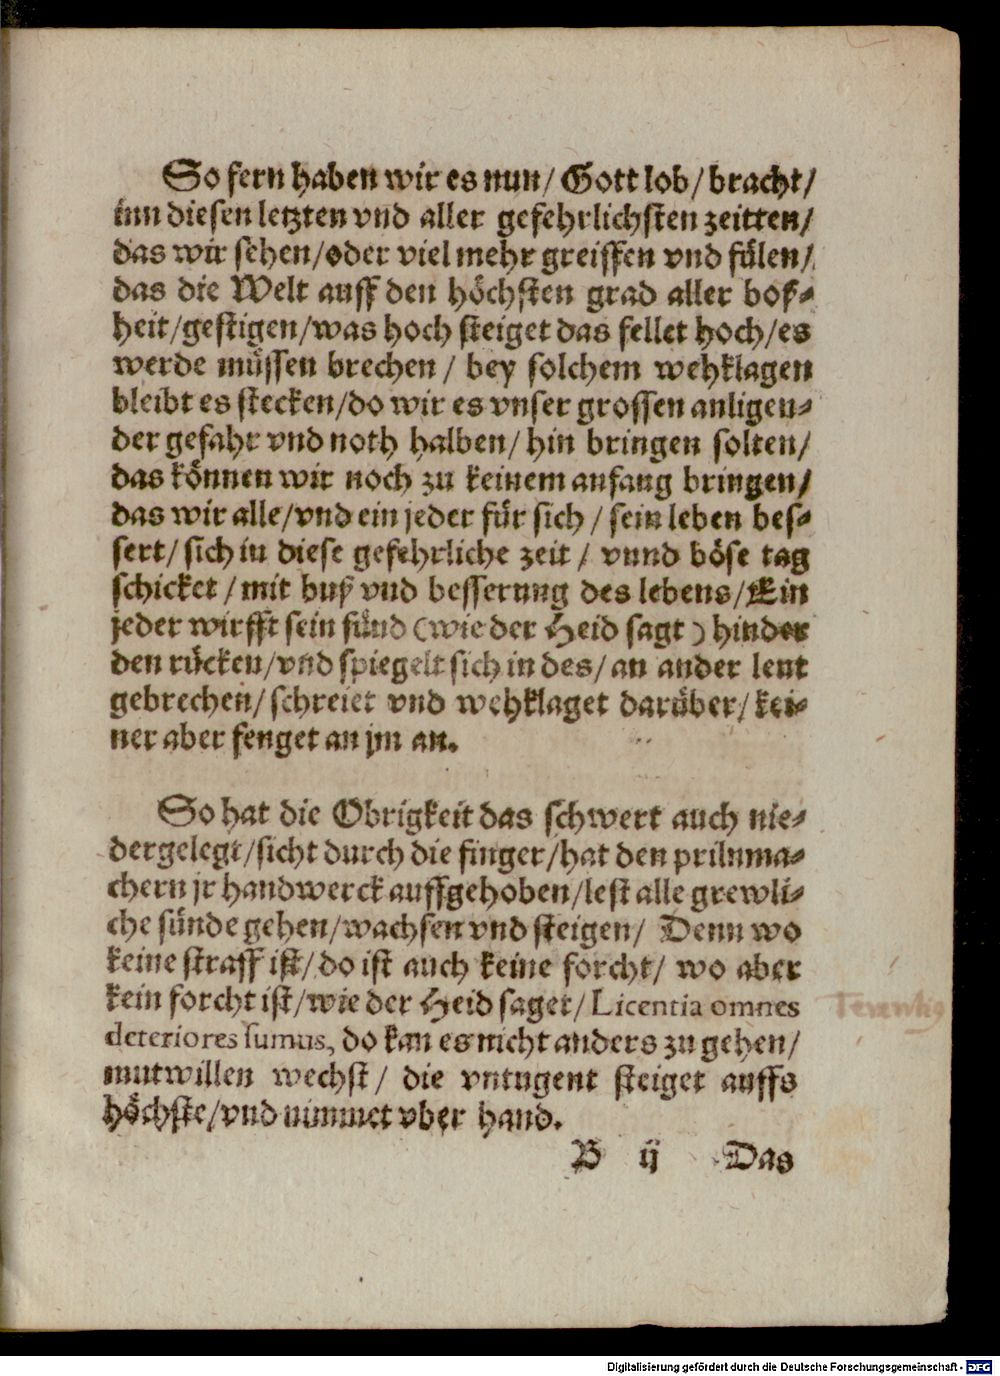 So fern haben wir es nun/ Gott lob/ bracht/
inn diesen letzten vnd aller gefehrlichsten zeitten/
das wir sehen/oder viel mehr greiffen vnd fülen/
das die Welt auff den höchsten grad aller bos-
heit/gestigen/was hoch steiget das fellet hoch/es
werde müssen brechen/ bey solchem wehklagen
bleibt es stecken/do wir es vnser grossen anligen-
der gefahr vnd noth halben/ hin bringen solten/
das können wir noch zu keinem anfang bringen/
das wir alle/vnd ein jeder für sich/ sein leben bes-
sert/ sich in diese gefehrliche zeit/ vnnd böse tag
schicket/ mit buß vnd besserung des lebens/Ein
jeder wirfft sein sünd (wie der Heid sagt) hinder
den rücken/vnd spiegelt sich in des/ an ander leut
gebrechen/ schreiet vnd wehklaget darüber/ kei-
ner aber fenget an jm an.
So hat die Obrigkeit das schwert auch nie-
dergelegt/sicht durch die finger/hat den prilnma-
chern jr handwerck auffgehoben/lest alle grewli-
che sünde gehen/wachsen vnd steigen/ Denn wo
keine straff ist/do ist auch keine forcht/ wo aber
kein forcht ist/wie der Heid saget/ Licentia omnes
deteriores sumus, do kan es nicht anders zu gehen/
mutwillen wechst/ die vntugent steiget auffs
höchste/vnd nimmet vber hand.
B ij Das
Digitalisierung gefördert durch die Deutsche Forschungsgemeinschaft - DFG